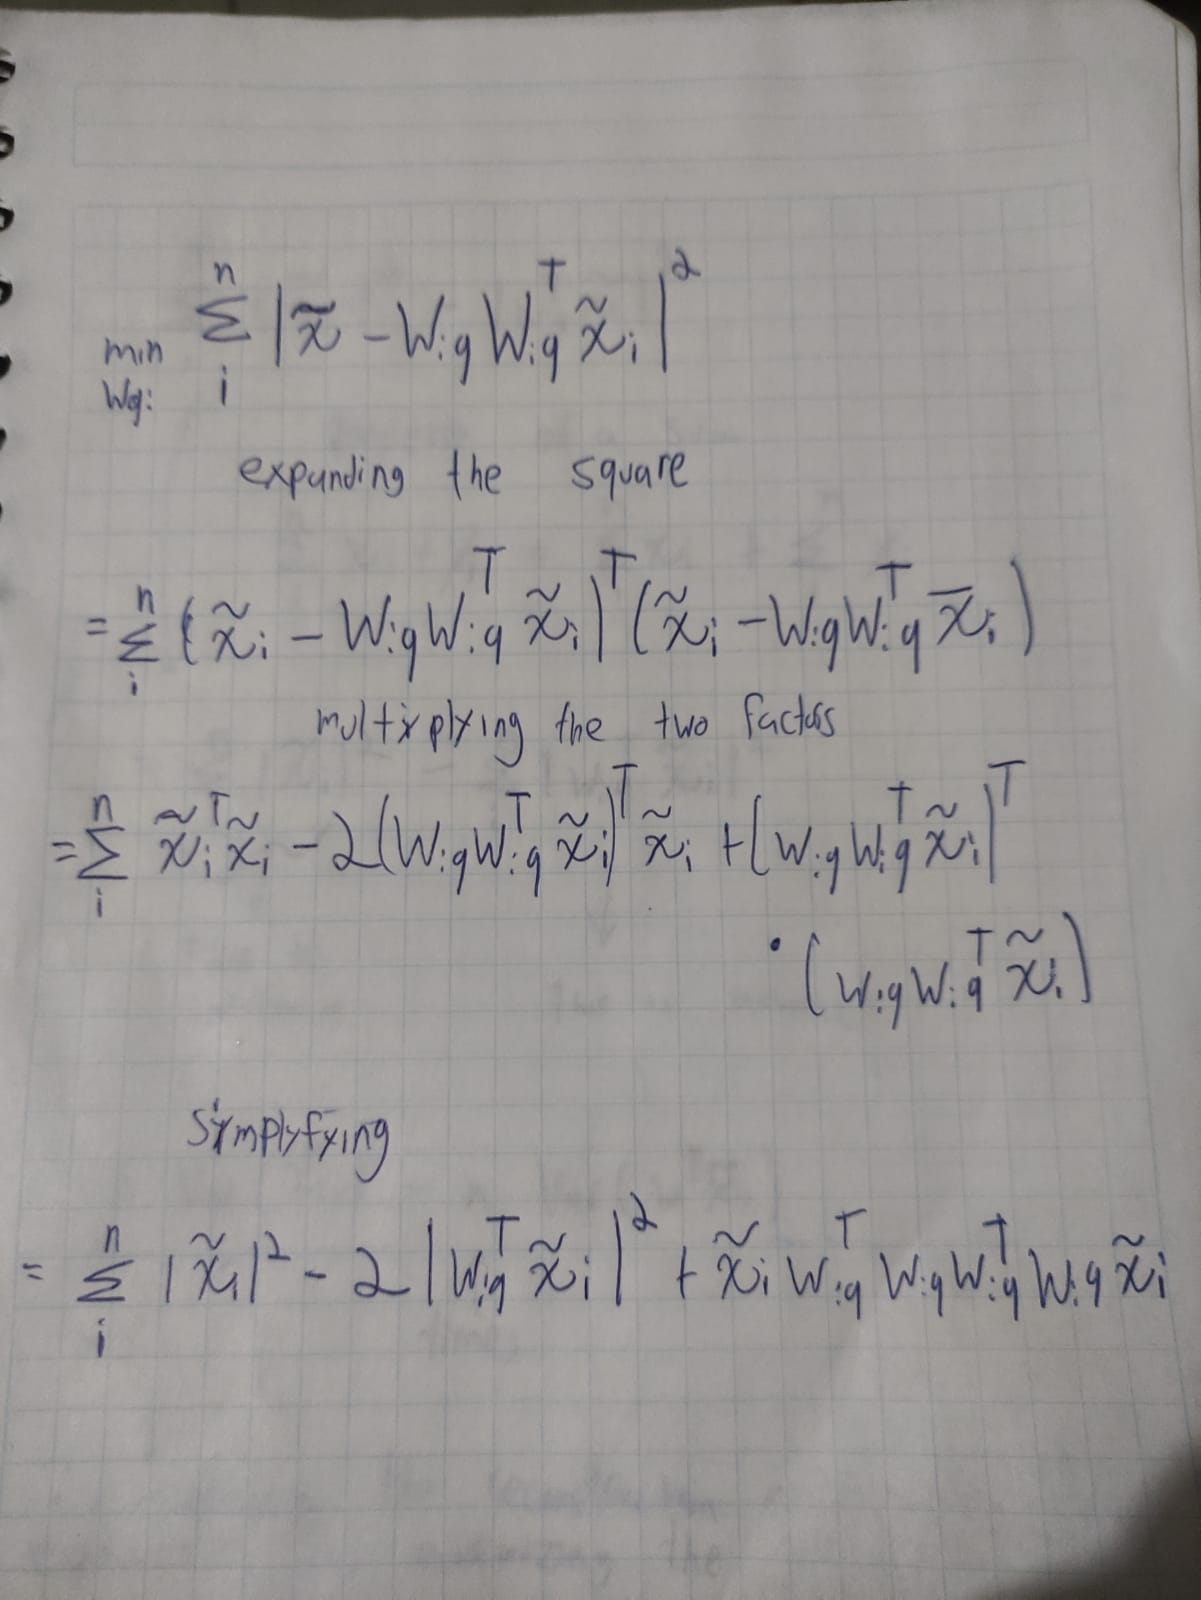 n
min Σ |x̃ - W:q W:qᵀ x̃i|²
Wq: i
expanding the square
= Σᵢⁿ (x̃i - W:q W:qᵀ x̃i)ᵀ (x̃i - W:q W:qᵀ x̄i)
multiplying the two factors
= Σᵢⁿ x̃iᵀ x̃i - 2(W:q W:qᵀ x̃i)ᵀ x̃i + (W:q W:qᵀ x̃i)ᵀ
· (W:q W:qᵀ x̃i)
Simplyfying
= Σᵢⁿ |x̃i|² - 2|W:qᵀ x̃i|² + x̃i W:qᵀ W:q W:qᵀ W:q x̃i